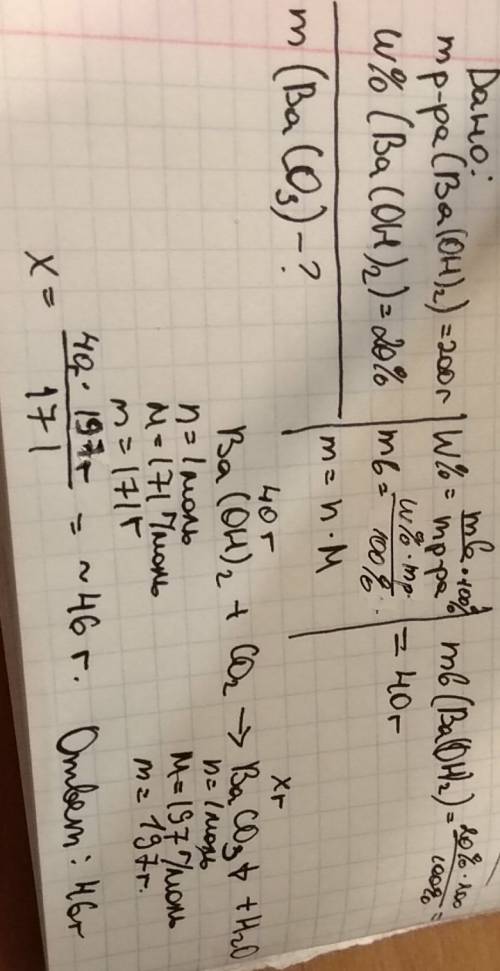 Дано:
m р-ра (Ba(OH)₂) = 200г
W% (Ba(OH)₂) = 20%
m (BaCO₃) - ?
W% = mв · 100% / mр-ра
mв = W% · mр. / 100% = 40г
m = n · M
mв (Ba(OH)₂) = 20% · 100 / 100% =
40г xг
Ba(OH)₂ + CO₂ → BaCO₃↓ + H₂O
n = 1 моль n = 1 моль
M = 171 г/моль M = 197 г/моль
m = 171 г m = 197 г.
X = 40г · 197г / 171 = ~46 г. Ответ: 46г